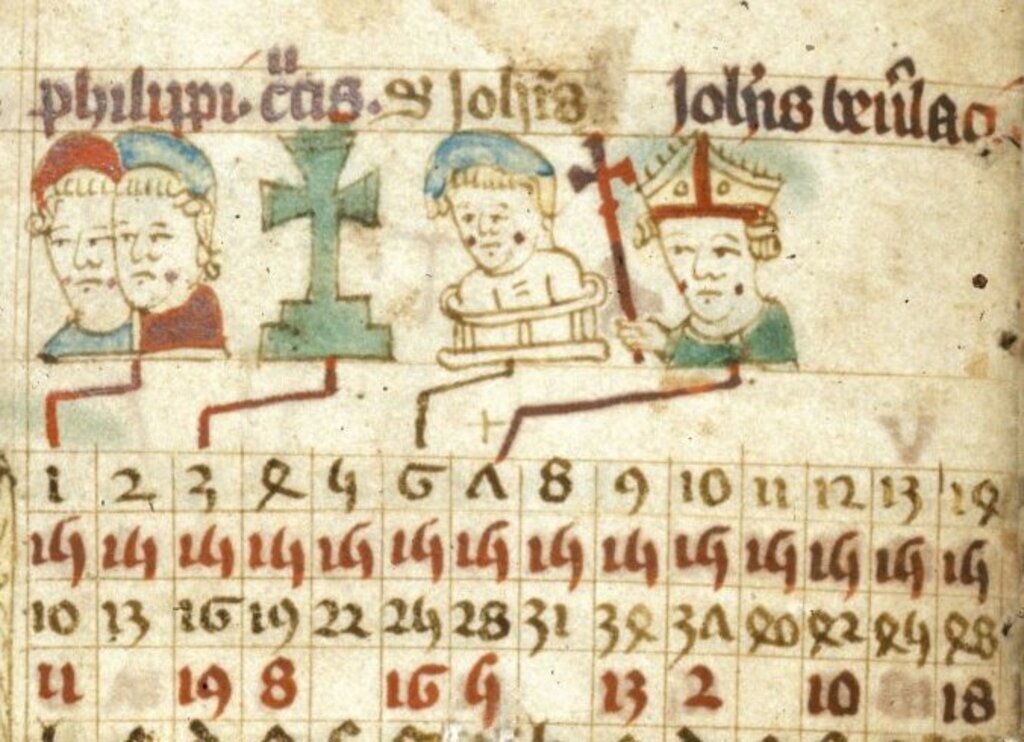 philippi. c̄cis. & Joh̄is Joh̄is beu̅lac.
1 2 3 4 5 6 7 8 9 10 11 12 13 14
15 15 15 15 15 15 15 15 15 15 15 15 15 15
10 13 16 19 22 25 28 31 34 37 40 42 45 48
11 19 8 16 5 13 2 10 18